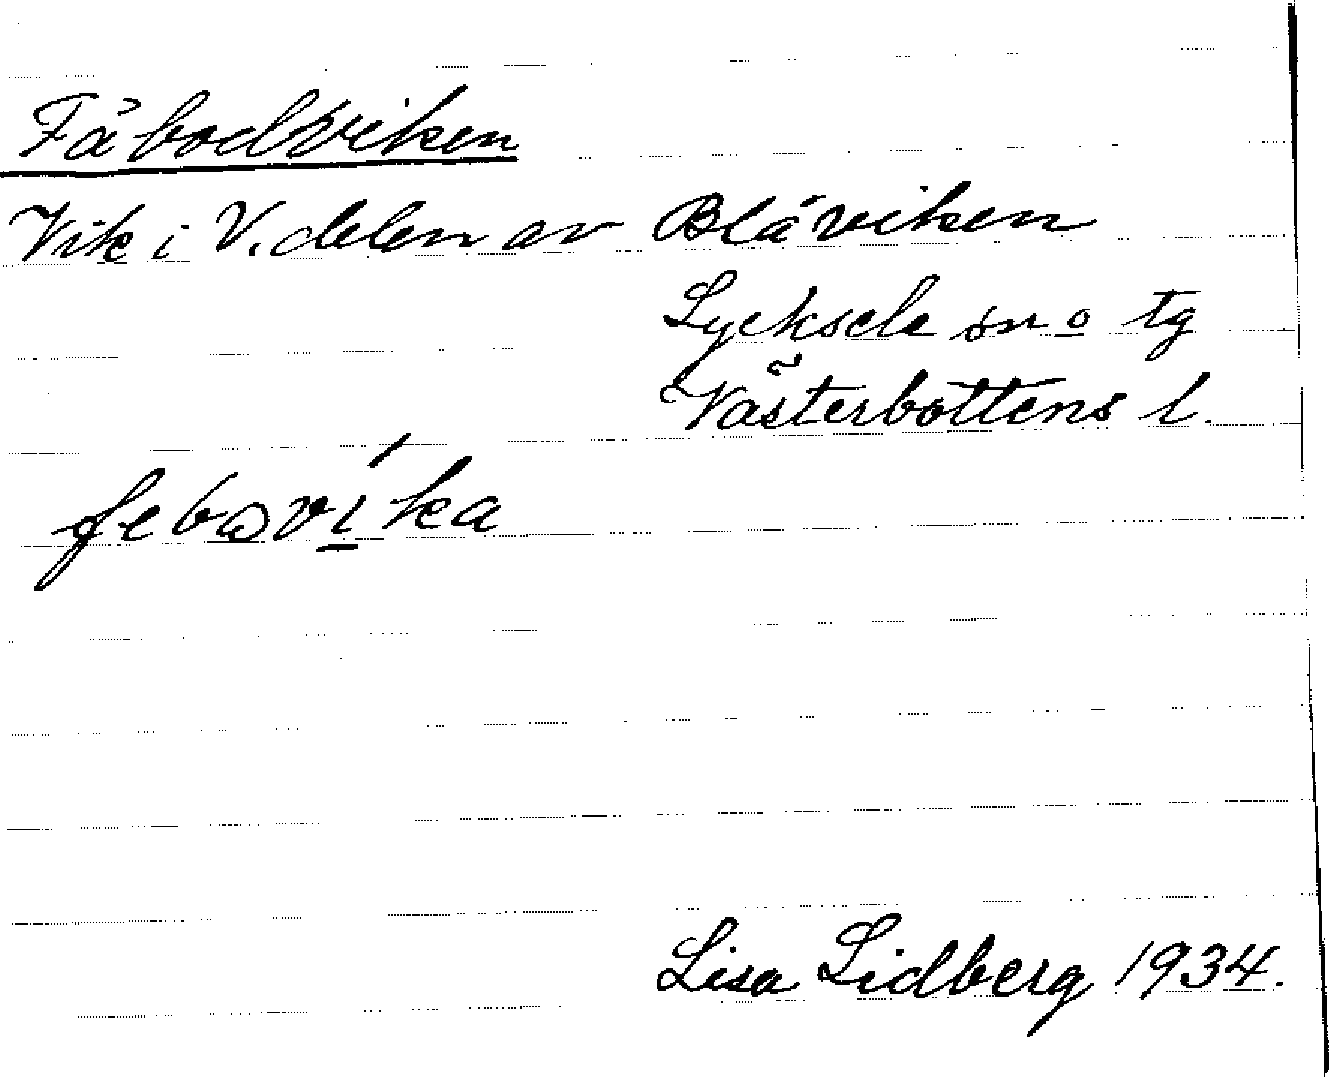 Fäbodviken
Vik i V. delen av Blåviken
Lycksele sn o tg
Västerbottens l.
febovika
Lisa Lidberg 1934.